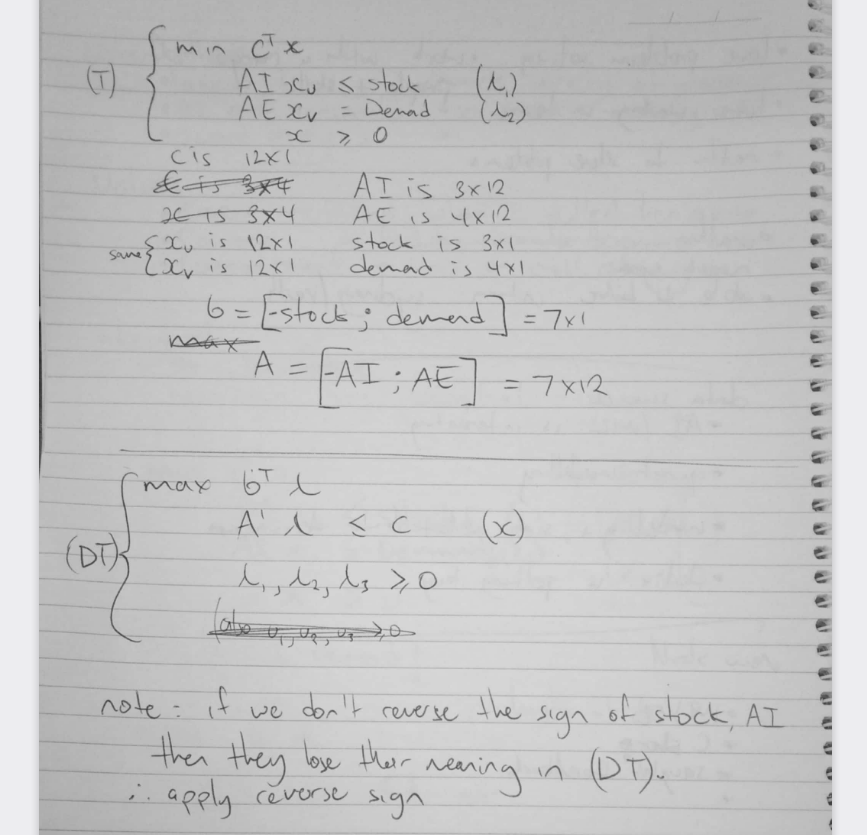 (T) { min cᵀx
AI xᵤ ≤ stock (λ₁)
AE xᵥ = Demad (λ₂)
x ≥ 0
c is 12x1
is 3x4 AI is 3x12
x is 3x4 AE is 4x12
same { xᵤ is 12x1 stock is 3x1
xᵥ is 12x1 demad is 4x1
b = [-stock ; demend] = 7x1
max
A = [-AI ; AE] = 7x12
(DT) { max bᵀ λ
A' λ ≤ c (x)
λ₁, λ₂, λ₃ ≥ 0
(also v₁, v₂, v₃ ≥ 0
note : if we don't reverse the sign of stock, AI
then they lose their meaning in (DT).
∴ apply reverse sign